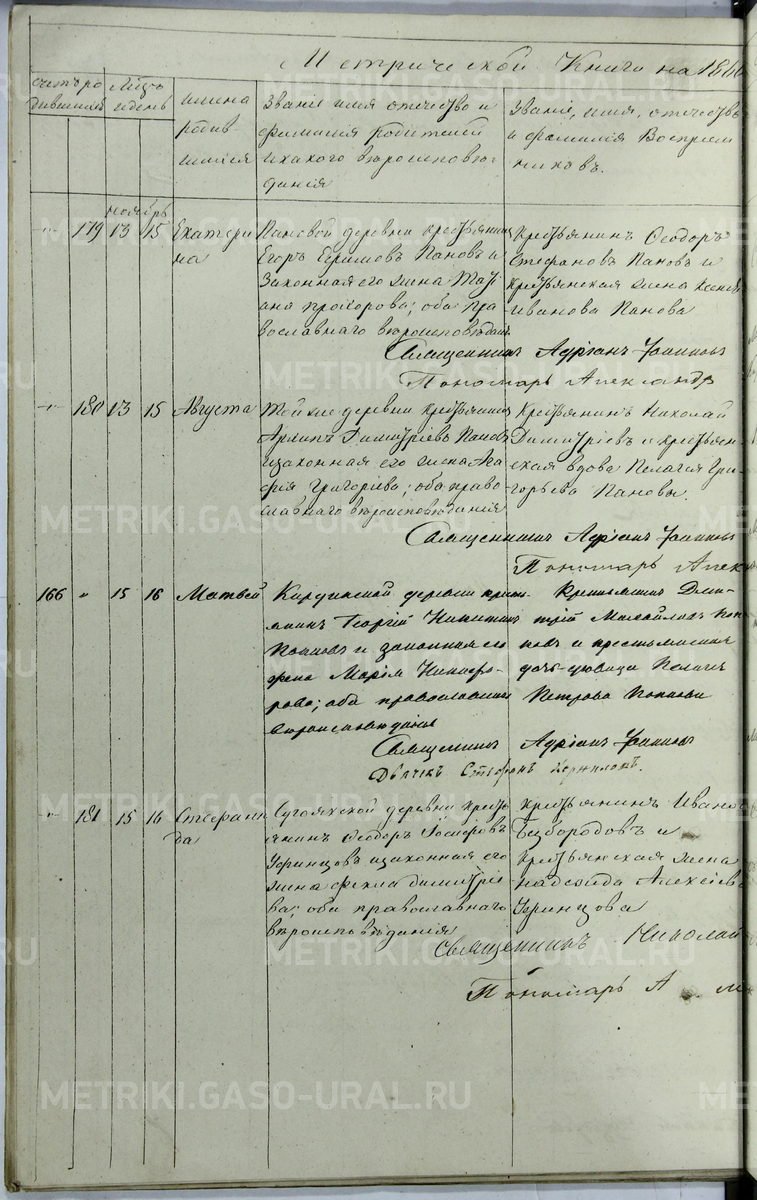 Метрической Книги на 186
счетъ ро
дившихся
Мѣсяцъ
и день
имена
родив
шихся
Званіе имя отечество и
фамилія Родителей
и какого вѣроисповѣ
данія
Званіе, имя, отечество
и фамилія Воспріем
никовъ.
ноябрь
179 13 15 Екатери
на
Пановой деревни крестьянинъ
Егоръ Ефимовъ Пановъ и
Законная его жена Тать
яна Прохорова; оба пра
вославнаго вѣроисповѣдан.
Крестьянинъ Ѳеодоръ
Стефановъ Пановъ и
крестьянская жена
Иванова Панова
Священникъ Адріанъ Іоанновъ
Пономарь Александр
180 13 15 Августа
Той же деревни крестьянинъ
Димитріевъ Пановъ
и законная его жена Ага
фія Григоріева; оба право
славнаго вѣроисповѣданія
Крестьянинъ Николай
Димитріевъ и крестьян
ская вдова Пелагія Гри
горьева Пановы.
Священникъ Адріанъ Іоанновъ
Пономарь Алек
166 " 15 16 Матвей
деревни крест
янинъ Георгій Никитинъ
Поповъ и законная его
жена Марія Никифо
рова; оба православнаго
вѣроисповѣданія
Крестьянинъ Дми
трій Михайловъ Поп
овъ и крестьянская
дочь девица Пелагея
Петрова Попова
Священникъ Адріанъ Іоанновъ
Дьячекъ Стефанъ
181 15 16 Стефани
да
Сугояхской деревни кресть
янинъ Ѳеодоръ Іосифовъ
Уфинцовъ и законная его
жена Фекла Димитріе
ва; оба православнаго
вѣроисповѣданія
Крестьянинъ Иванъ
Безбородовъ и
крестьянская жена
Надежда Алексіева
Уфинцова
Священникъ Николай
Пономарь А
METRIKI.GASO-URAL.RU